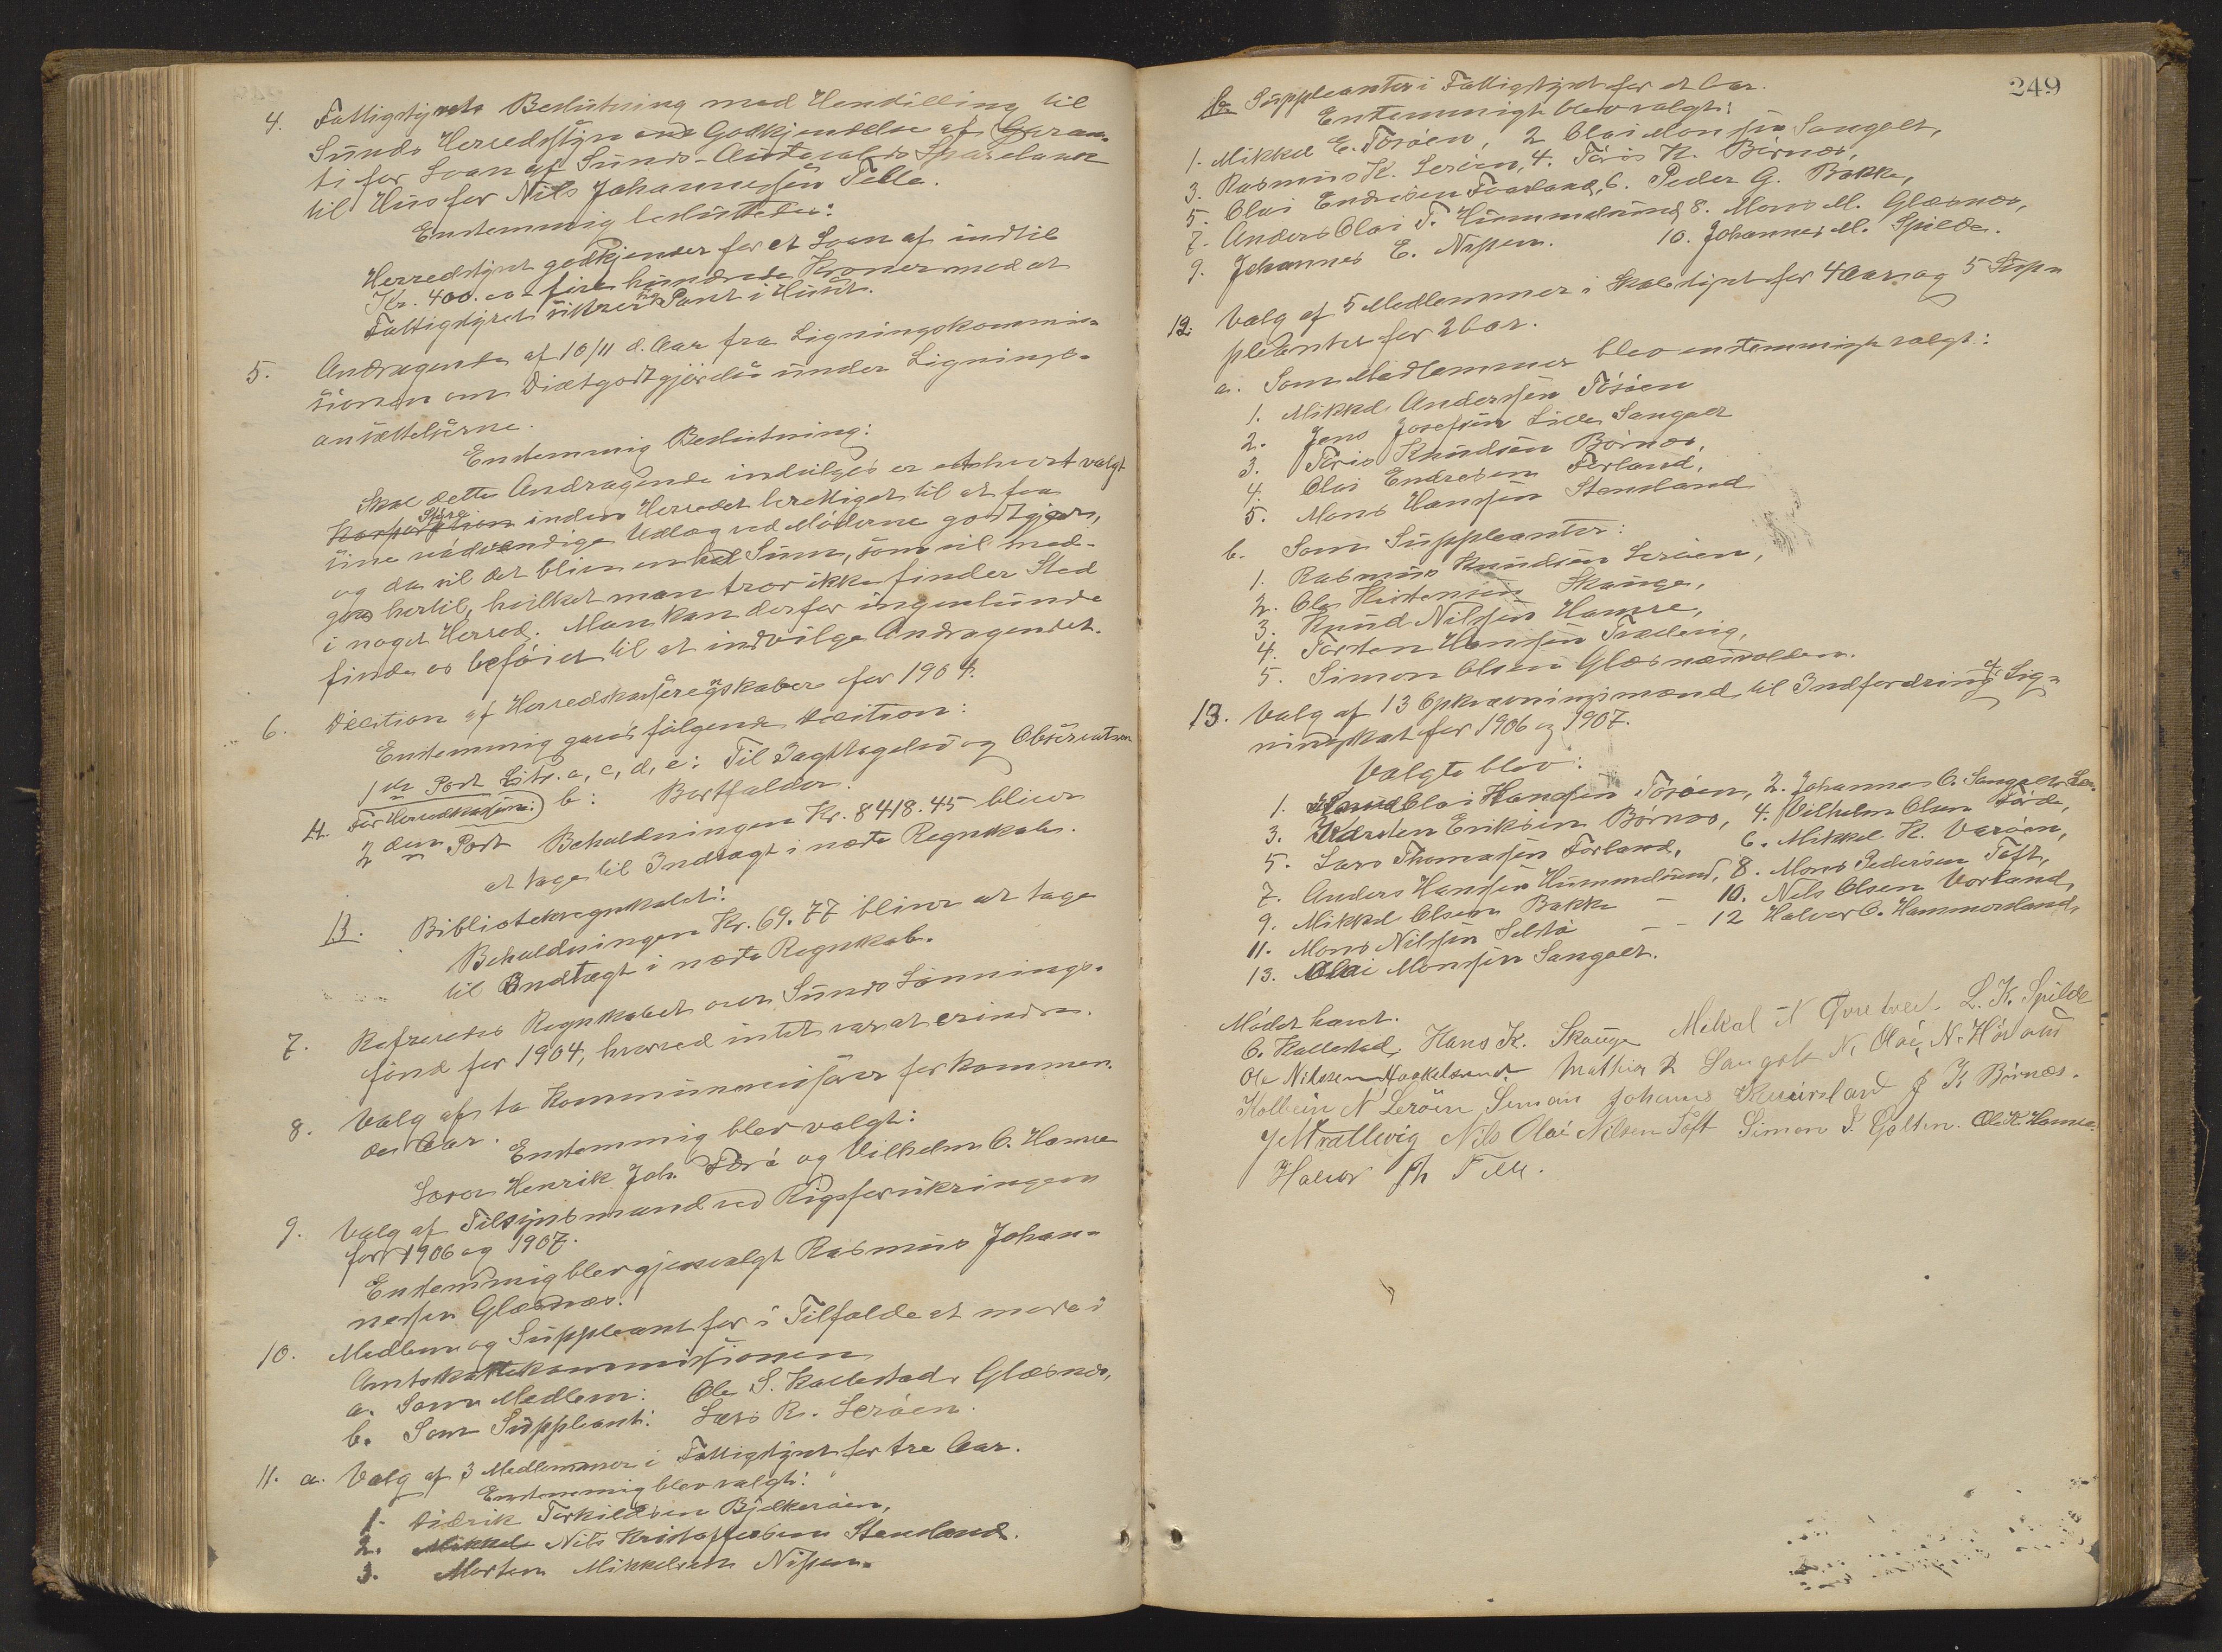 4. Fattigstyrets Beslutning med Henstilling til
Sunds Herredsstyre om Godkjendelse af Garan-
ti for Laan af Sunds-Austevolds Sparebank
til Hus for Nils Johannessen Telle.
Enstemmig besluttedes:
Herredstyret godkjender for et Laan af indtil
Kr. 400.00 fire hundrede Kroner mod at
Fattigstyret sikrer sig Pant i Huset.
5. Andragende af 10/11 d. Aar fra Ligningskommis-
sionen om Diætgodtgjørelse under Lignings-
ansættelserne.
Enstemmig Beslutning:
Skal dette Andragende indvilges er ethvert valgt
Styre
Korporation inden Herredet berettiget til at faa
sine nødvendige Udlæg ved Møderne godtgjort,
og da vil det blive en hel Sum, som vil med-
gaa hertil, hvilket man tror ikke finder Sted
i noget Herred. Man kan derfor ingenlunde
finde os beføiet til at indvilge Andragendet.
6. Decition af Herredskasseregnskabet for 1904.
Enstemmig gaves følgende Decition:
1ste Post Litr. a, c, d, e: Til Iagttagelse og Observation
A. For Herredskassen: b: Bortfalder.
2den Post Beholdningen Kr. 8418.45 bliver
at tage til Indtægt i næste Regnskab.
B. Bibliotekregnskabet:
Beholdningen Kr. 69.77 bliver at tage
til Indtægt i næste Regnskab.
7. Refereredes Regnskabet over Sunds Lønnings-
fond for 1904, hvorved intet var at erindre.
8. Valg af to Kommunerevisorer for kommen-
de Aar. Enstemmig blev valgt:
Lærer Henrik Joh. Førde og Vilhelm O. Hamre
9. Valg af Tilsynsmand ved Rigsforsikringen
for 1906 og 1907.
Enstemmig blev gjenvalgt Rasmus Johan-
nessen Glæsnæs.
10. Medlem og Suppleant for i Tilfælde at møde i
Amtsskattekommissionen
a. Som Medlem: Ole S. Kallestad, Glæsnæs,
b. Som Suppleant: Lars R. Lerøen.
11. a. Valg af 3 Medlemmer i Fattigstyret for tre Aar.
Enstemmig blev valgt:
1. Didrik Terkildsen Bjelkerøen,
2. Mikkel Nils Kristoffersen Stensland.
3. Morten Mikkelsen Nipen.
249
b. Suppleanter i Fattigstyret for et Aar.
Enstemmigt blev valgt:
1. Mikkel E. Tøsøen, 2 Olai Monsen Sangolt,
3. Rasmus K. Lerøen, 4. Tøris K. Børnæs,
5. Olai Endresen Forland, 6. Peder G. Bakke,
7. Anders Olai T. Hummelsund, 8. Mons M. Glæsnæs,
9. Johannes E. Nipen. 10. Johannes M. Spilde.
12. Valg af 5 Medlemmer i Skolestyret for 4 Aar og 5 Sup-
pleanter for 2 Aar.
a. Som Medlemmer blev enstemmigt valgt:
1. Mikkel Anderssen Tøsøen
2. Jens Josefsen Lille Sangolt
3. Tøris Knudsen Børnæs,
4. Olai Endresen Forland,
5. Mons Hanssen Stensland
b. Som Suppleanter:
1. Rasmus Knudsen Lerøen,
2. Ole Kistensen Skauge,
3. Knud Nilssen Hamre,
4. Torsten Hanssen Trælevig,
5. Simon Olsen Glæsnæsvolden.
13. Valg af 13 Opkrævningsmænd til Indfordring af Lig-
ningsskat for 1906 og 1907.
Valgte blev:
1. Olai Hanssen Tøsøen, 2. Johannes O. Sangolt,
3. Karsten Eriksen Børnæs, 4. Vilhelm Olsen Førde,
5. Lars Thomassen Forland, 6. Mikkel K. Værøen,
7. Anders Hanssen Hummelsund, 8. Mons Pedersen Toft,
9. Mikkel Olsen Bakke — 10. Nils Olsen Vorland,
11. Mons Nilssen Selstø — 12 Halvor O. Hammersland,
13. Olai Monssen Sangolt.
Mødet hævet.
O. Kallestad, Hans K. Skauge Mikal N Tveitved. L. K. Spilde
Ole Nilssen Høkelsund Mathias D Sangolt N. Olai, N. Høiland
Kolbein N Lerøen Johannes J K Børnæs.
J M Trællevig Nils Olai Nilsen Toft Simon S. Golten. Ole K Hamre.
Halvor Th Telle.